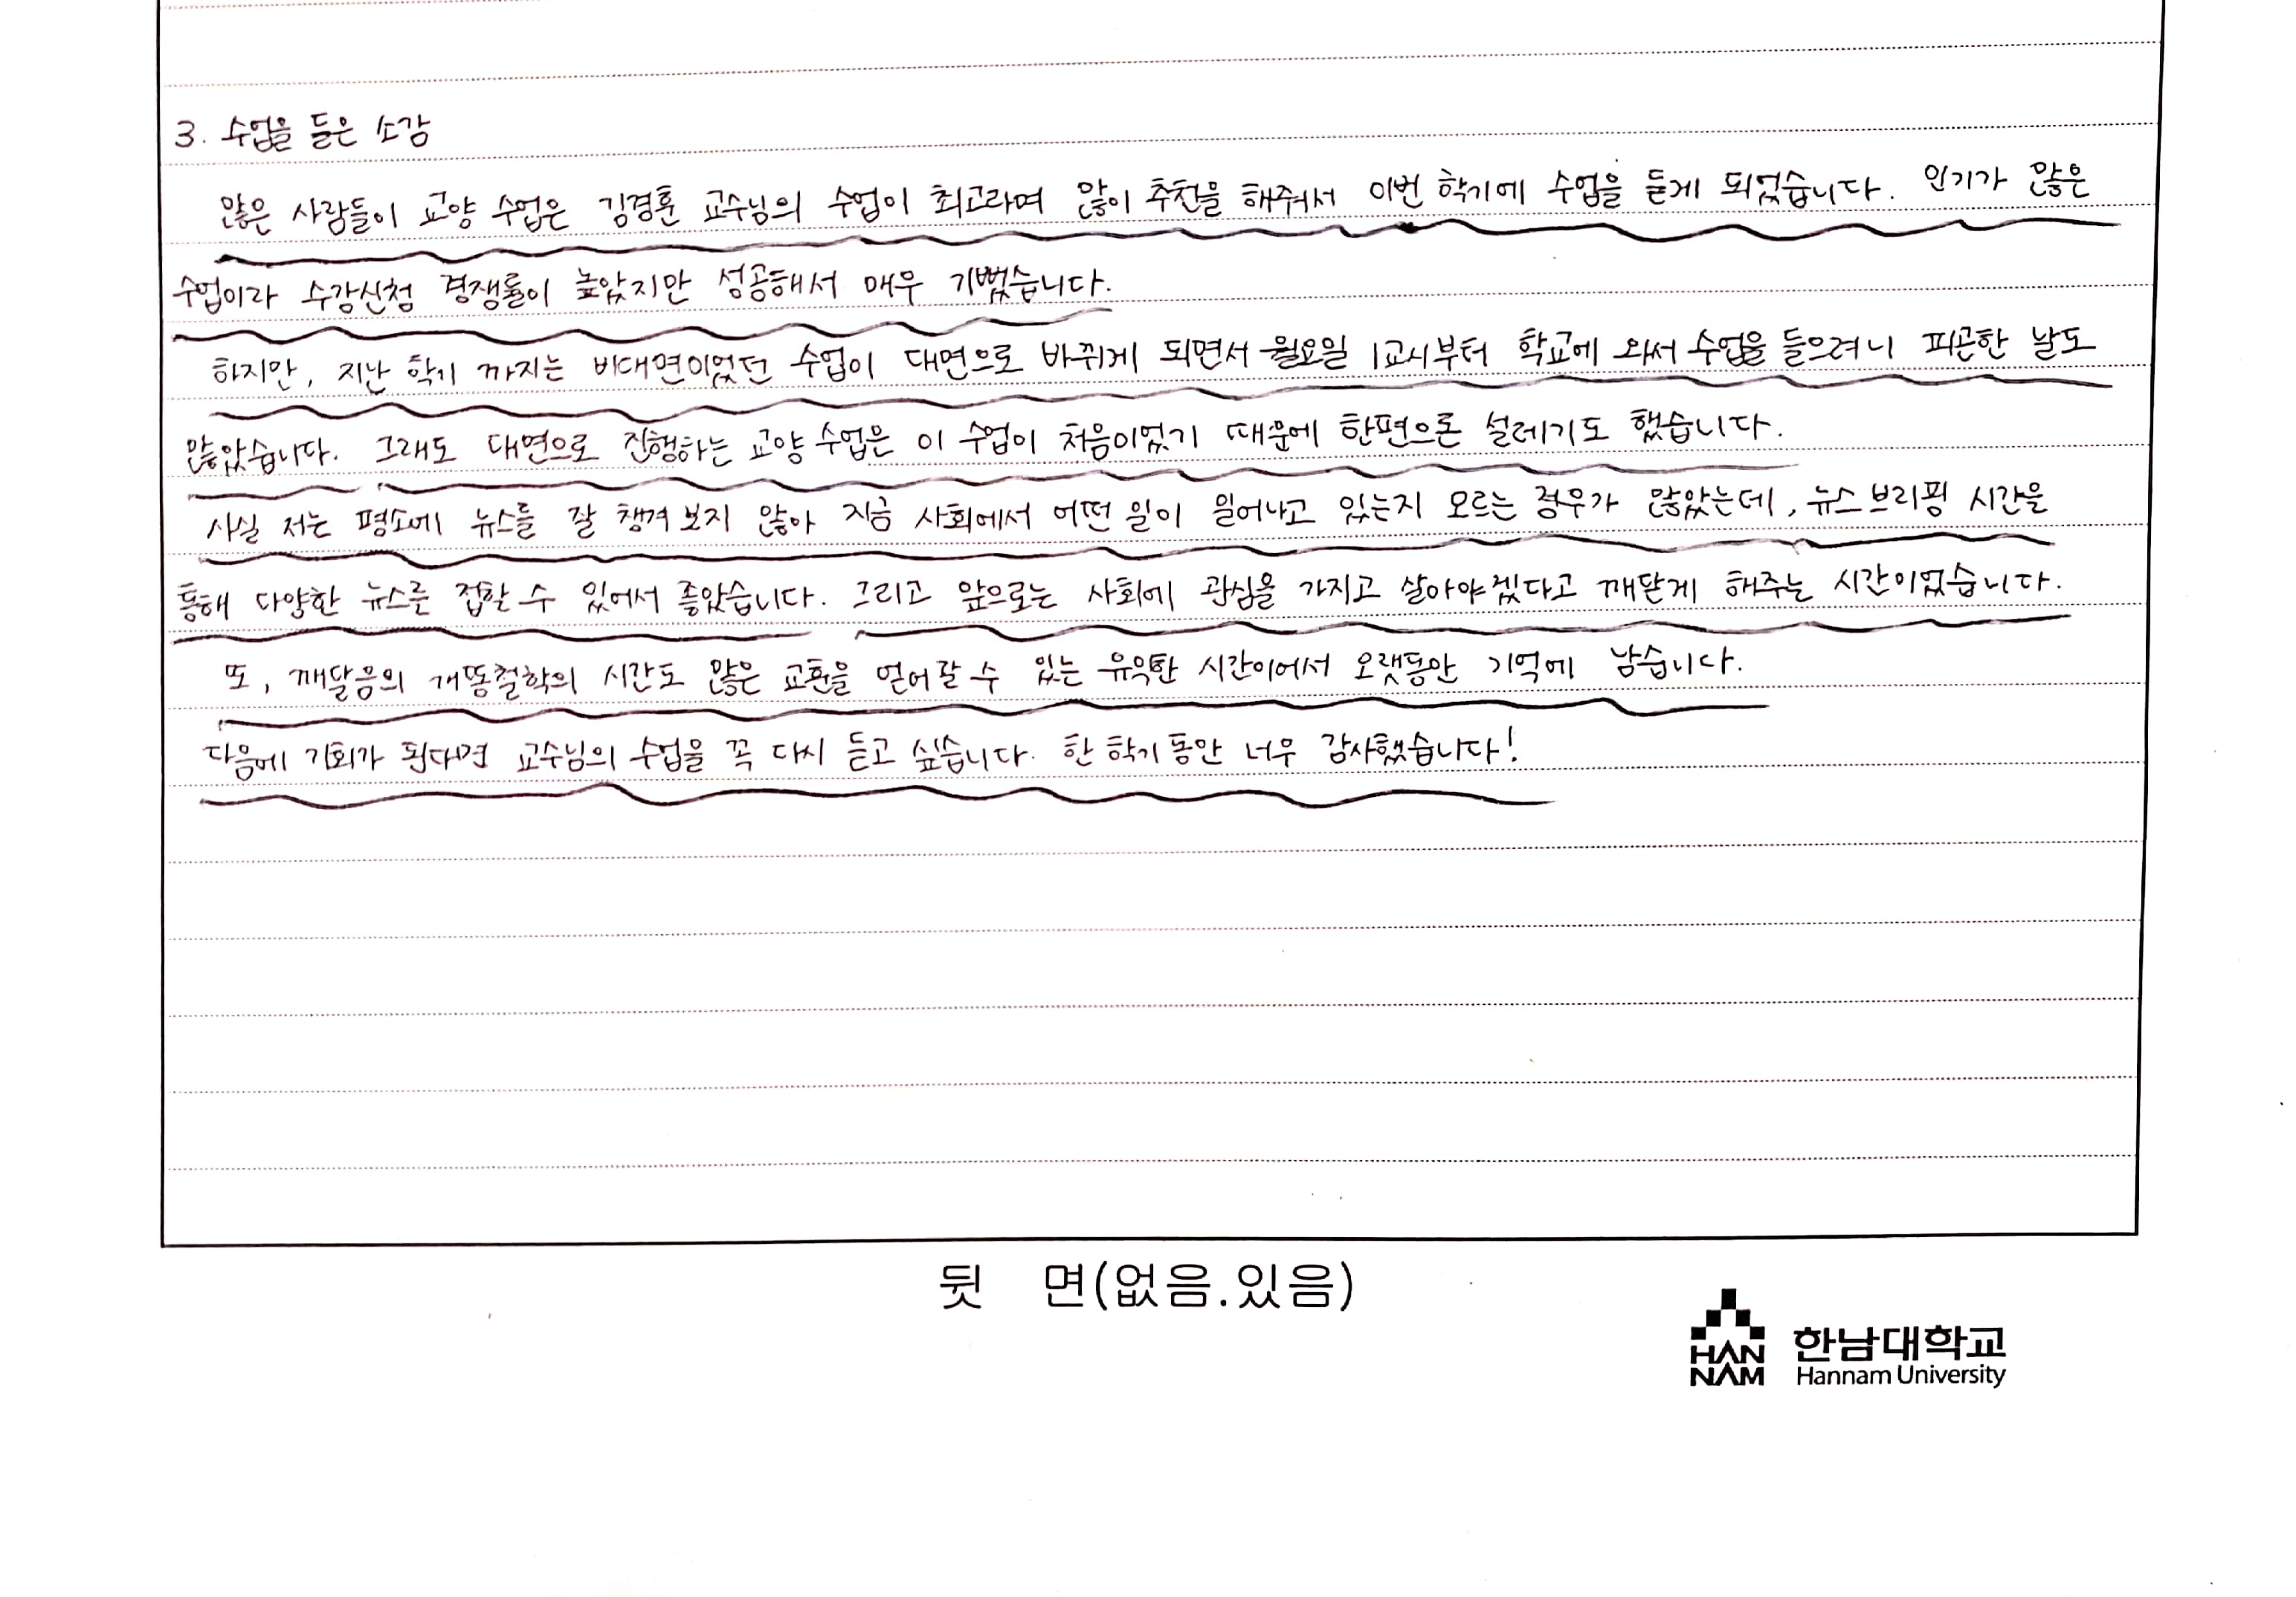 3. 수업을 들은 소감
많은 사람들이 교양 수업은 김경훈 교수님의 수업이 최고라며 많이 추천을 해줘서 이번 학기에 수업을 듣게 되었습니다. 인기가 많은
수업이라 수강신청 경쟁률이 높았지만 성공해서 매우 기뻤습니다.
하지만, 지난 학기 까지는 비대면이었던 수업이 대면으로 바뀌게 되면서 월요일 1교시부터 학교에 와서 수업을 들으려니 피곤한 날도
많았습니다. 그래도 대면으로 진행하는 교양 수업은 이 수업이 처음이었기 때문에 한편으론 설레기도 했습니다.
사실 저는 평소에 뉴스를 잘 챙겨 보지 않아 지금 사회에서 어떤 일이 일어나고 있는지 모르는 경우가 많았는데, 뉴스 브리핑 시간을
통해 다양한 뉴스를 접할 수 있어서 좋았습니다. 그리고 앞으로는 사회에 관심을 가지고 살아야겠다고 깨닫게 해주는 시간이었습니다.
또, 깨달음의 개똥철학의 시간도 많은 교훈을 얻어갈 수 있는 유익한 시간이어서 오랫동안 기억에 남습니다.
다음에 기회가 된다면 교수님의 수업을 꼭 다시 듣고 싶습니다. 한 학기 동안 너무 감사했습니다!
뒷 면(없음.있음)
HAN
NAM
한남대학교
Hannam University